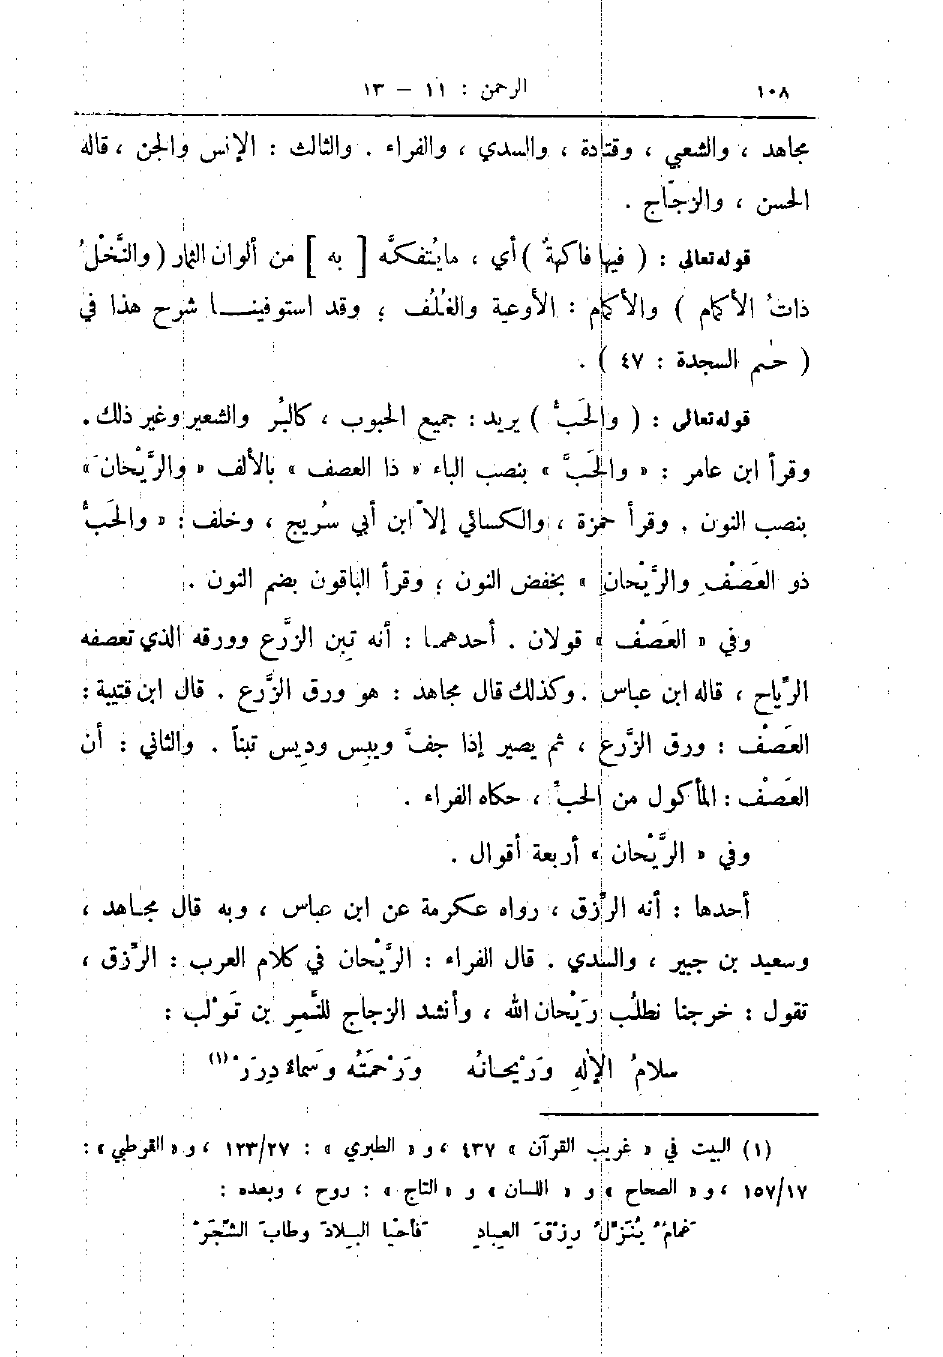 ١٠٨ الرحمن : ١١ – ١٣
مجاهد ، والشعبي ، وقتادة ، والسدي ، والفراء . والثالث : الإنس والجن ، قاله
الحسن ، والزجّاج .
قوله تعالى : ( فيها فاكهةٌ ) أي ، مايُتفكَّه [ به ] من ألوان الثمار ( والنَّخْلُ
ذاتُ الأكمام ) والأكمام : الأوعية والغُلُف ؛ وقد استوفينا شرح هذا في
( حٰم السجدة : ٤٧ ) .
قوله تعالى : ( والحَبُّ ) يريد : جميع الحبوب ، كالبُر والشعير وغير ذلك .
وقرأ ابن عامر : « والحَبَّ » بنصب الباء « ذا العصف » بالألف « والرَّيْحانَ »
بنصب النون . وقرأ حمزة ، والكسائي إلاّ ابن أبي سُريج ، وخلف : « والحَبُّ
ذو العَصْفِ والرَّيْحانِ » بخفض النون ؛ وقرأ الباقون بضم النون .
وفي « العَصْف » قولان . أحدهما : أنه تبن الزَّرع وورقه الذي تعصفه
الرِّياح ، قاله ابن عباس . وكذلك قال مجاهد : هو ورق الزَّرع . قال ابن قتيبة :
العَصْف : ورق الزَّرع ، ثم يصير إذا جفَّ ويبس وديس تبناً . والثاني : أن
العَصْف : المأكول من الحبِّ ، حكاه الفراء .
وفي « الرَّيْحان » أربعة أقوال .
أحدها : أنه الرِّزق ، رواه عكرمة عن ابن عباس ، وبه قال مجاهد ،
وسعيد بن جبير ، والسدي . قال الفراء : الرَّيْحان في كلام العرب : الرِّزق ،
تقول : خرجنا نطلُب رَيْحان الله ، وأنشد الزجاج للنَّمِر بن تَوْلب :
سلامُ الإلٰهِ ورَيْحانُه ورَحْمَتُه وسَماءٌ دِرَرْ (١)
(١) البيت في « غريب القرآن » ٤٣٧ ، و « الطبري » : ١٢٣/٢٧ ، و « القرطبي » :
١٥٧/١٧ ، و « الصحاح » و « اللسان » و « التاج » : روح ، وبعده :
غَمامٌ يُنَزِّلُ رِزْقَ العِبادِ فأحْيا البِلادَ وطابَ الشَّجَرْ